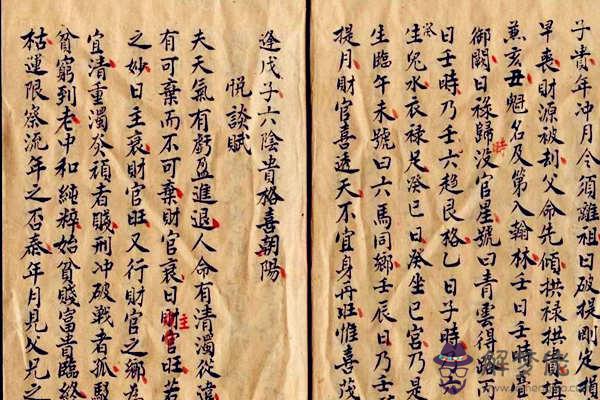 子貴年冲月令須離祖日破提剛定損
早喪財源被刦父命先傾拱禄拱貴填
兼亥丑魁名及第入翰林壬日壬時
御闕日禄歸没官星號曰青雲得路丙
日壬時乃壬六趋艮格乙日子時
生鬼水衣禄足癸巳日癸坐巳宫乃是
生臨午未號曰六馬同鄉壬辰日乃壬
提月財官喜透天不宜身再旺惟喜茂
逢戊子六陰貴格喜朝陽
悅談賦
夫天氣有虧盈進退人命有清濁從違
有可棄而不可棄財官衰日主財官旺若
之妙日主衰財官旺又行財官之鄉為
宜清重濁夲頑者賤刑冲破戰者孤
貧窮到老中和純粹始貧賤富貴臨終
枯運限察流年之否泰年月見父兄之
解梦佬